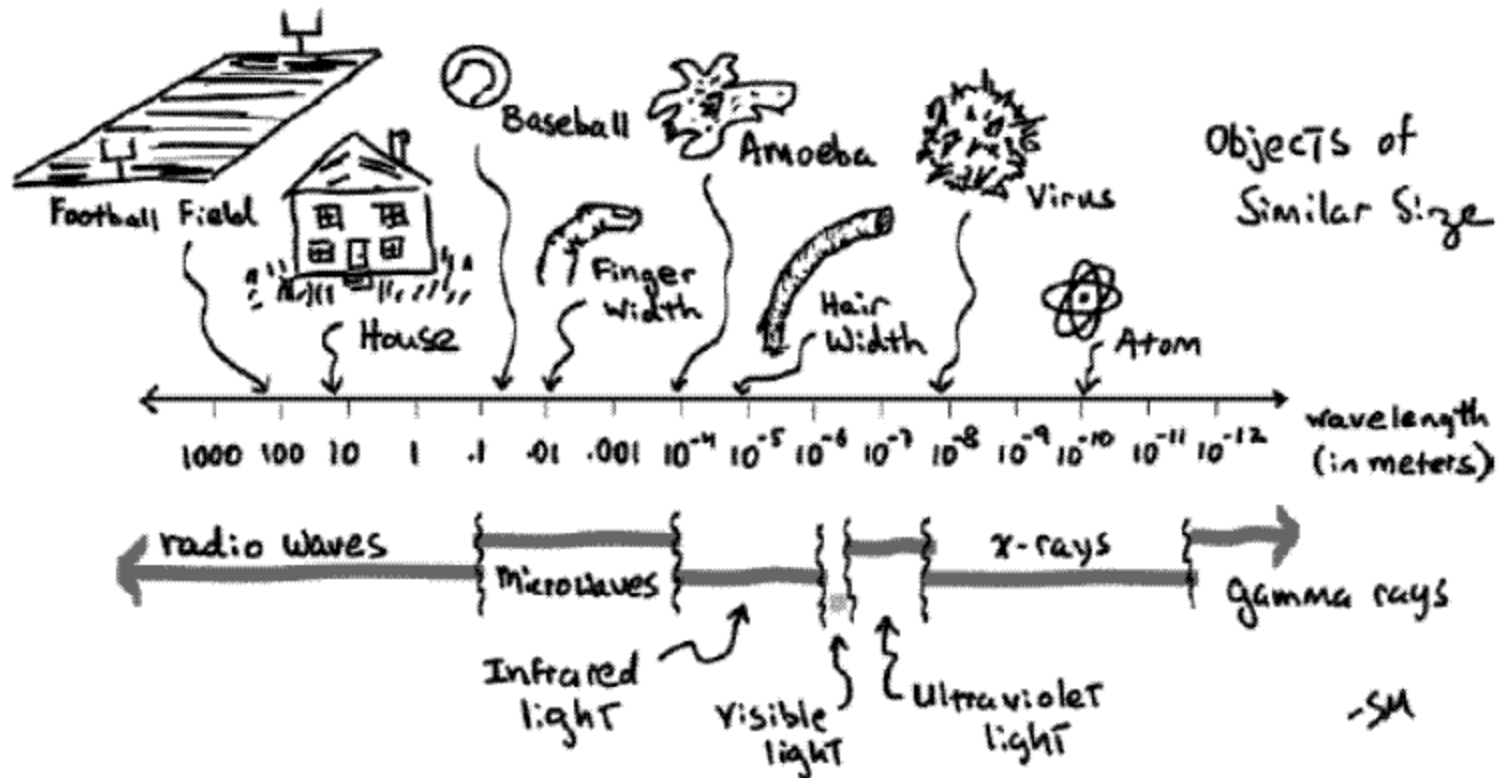 Football Field
House
Baseball
Finger
Width
Amoeba
Hair
Width
Virus
Atom
Objects of
Similar Size
1000 100 10 1 .1 .01 .001 10⁻⁴ 10⁻⁵ 10⁻⁶ 10⁻⁷ 10⁻⁸ 10⁻⁹ 10⁻¹⁰ 10⁻¹¹ 10⁻¹²
wavelength
(in meters)
radio waves
microwaves
Infrared
light
visible
light
Ultraviolet
light
x-rays
gamma rays
-SM